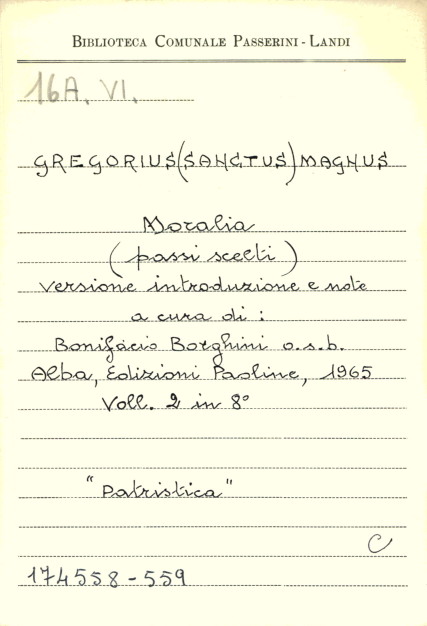 BIBLIOTECA COMUNALE PASSERINI - LANDI
16A. VI.
GREGORIUS (SANCTUS) MAGNUS
Moralia
( passi scelti )
versione introduzione e note
a cura di :
Bonifacio Borghini o.s.b.
Alba, Edizioni Paoline, 1965
Voll. 2 in 8°
"Patristica"
C
174558 - 559